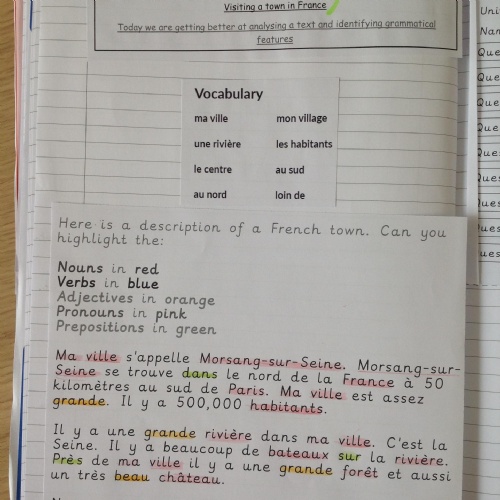 Visiting a town in France
Today we are getting better at analysing a text and identifying grammatical
features
Vocabulary
ma ville mon village
une rivière les habitants
le centre au sud
au nord loin de
Here is a description of a French town. Can you
highlight the:
Nouns in red
Verbs in blue
Adjectives in orange
Pronouns in pink
Prepositions in green
Ma ville s'appelle Morsang-sur-Seine. Morsang-sur-
Seine se trouve dans le nord de la France à 50
kilomètres au sud de Paris. Ma ville est assez
grande. Il y a 500,000 habitants.
Il y a une grande rivière dans ma ville. C'est la
Seine. Il y a beaucoup de bateaux sur la rivière.
Près de ma ville il y a une grande forêt et aussi
un très beau château.